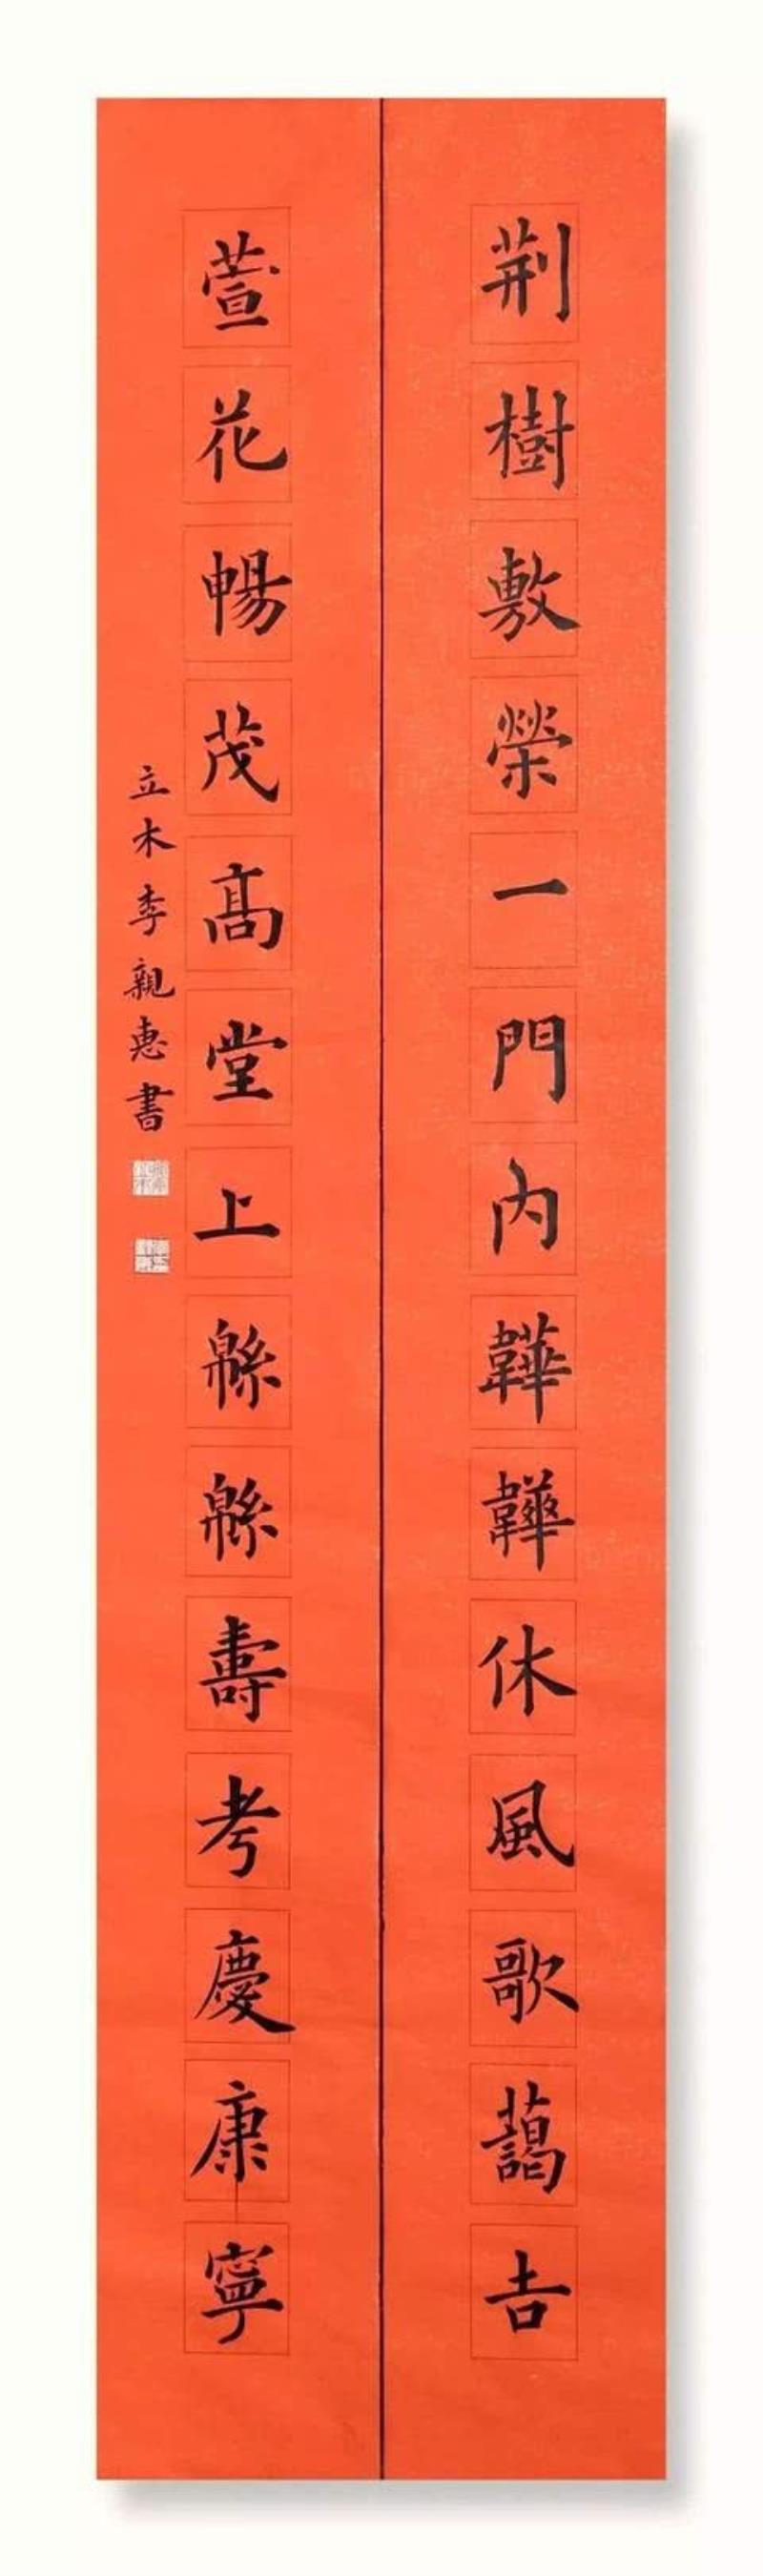 荆樹敷榮一門內韡韡休風歌藹吉
萱花暢茂高堂上緜緜壽考慶康寧
立木李親惠書